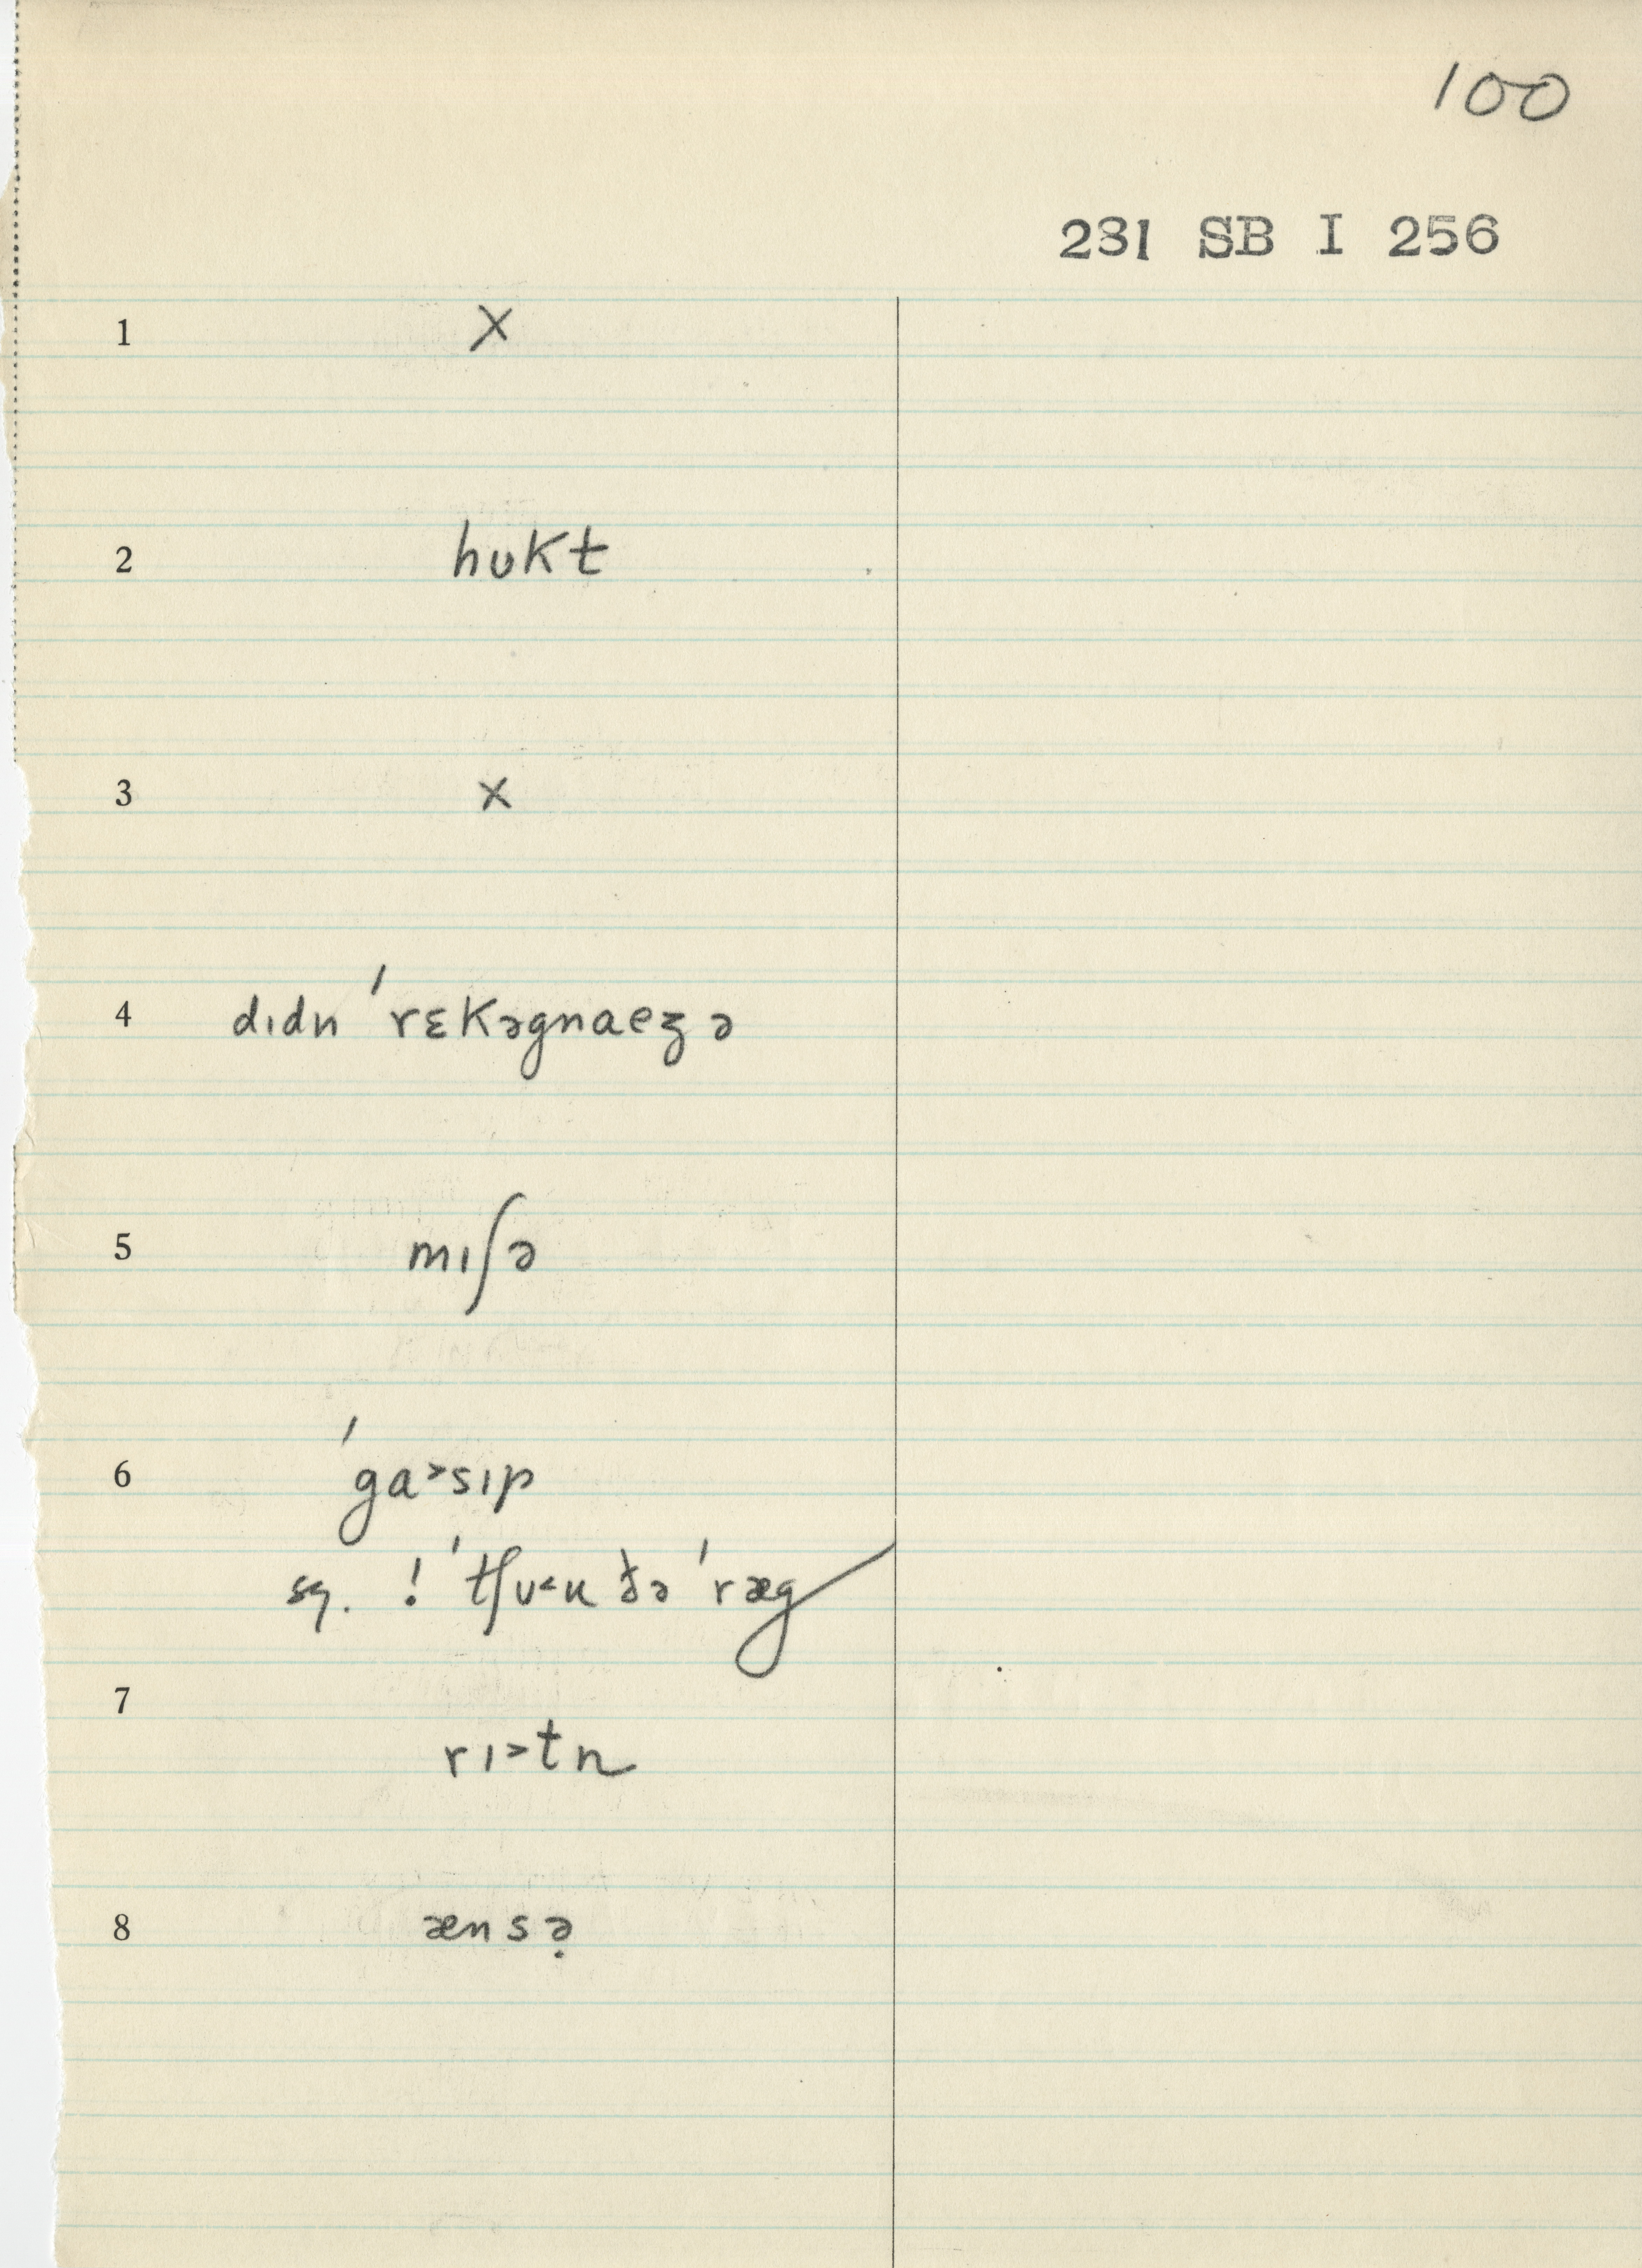 100
231 SB I 256
1 X
2 hʊkt
3 x
4 dɪdn ˈrɛkəgnaeʒ ə
5 mɪʃə
6 ˈga˃sɪp
sq. ! ˈtʃu˂u ðə ˈræg
7
rɪ˃tn
8 ænsə̣